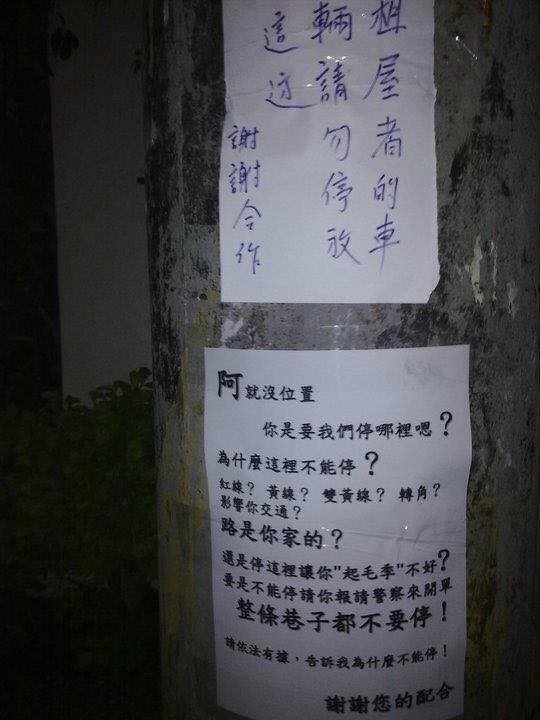 租屋者的車
輛請勿停放
這边
謝謝合作
阿就沒位置
你是要我們停哪裡嗯？
為什麼這裡不能停？
紅線？ 黃線？ 雙黃線？ 轉角？
影響你交通？
路是你家的？
還是停這裡讓你"起毛季"不好？
要是不能停請你報請警察來開單
整條巷子都不要停！
請依法有據，告訴我為什麼不能停！
謝謝您的配合